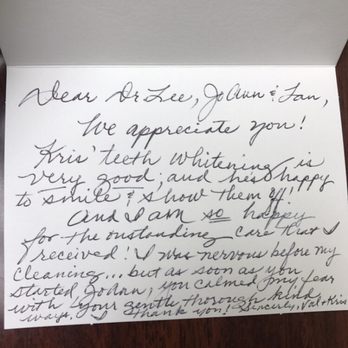 Dear Dr Lee, JoAnn & Lan,
We appreciate you!
Kris' teeth whitening is
very good, and hes happy
to smile & show them off!
And I am so happy
for the oustanding care that I
received! I was nervous before my
cleaning... but as soon as you
started, JoAnn, you calmed my fear
with your gentle, thorough kind
ways, I thank you! Sincerly, Val & Kris